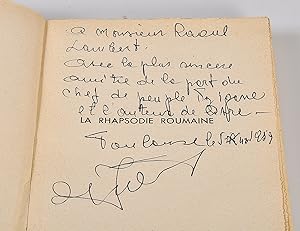 a Monsieur Raoul
Lambert.
avec la plus sincere
amitié de la part du
chef de peuple Tzigane
et l'auteur de
LA RHAPSODIE ROUMAINE
Toulouse le